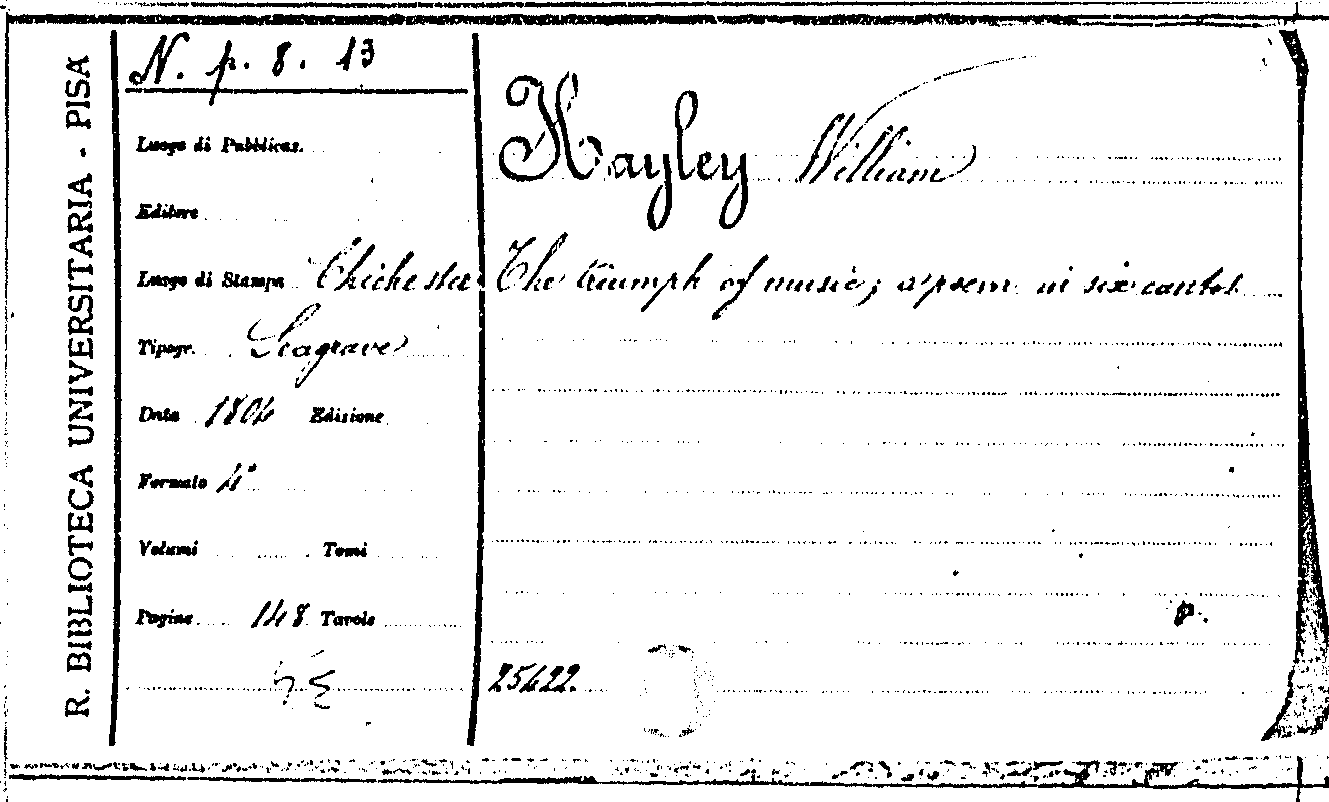 R. BIBLIOTECA UNIVERSITARIA - PISA
N. p. 8. 13
Luogo di Pubblicaz.
Editore
Luogo di Stampa Chichester
Tipogr. Seagrave
Data 1804 Edizione
Formato 4°
Volumi Tomi
Pagine 148 Tavole
Hayley William
The triumph of music; a poem in six cantos
25422.
p.